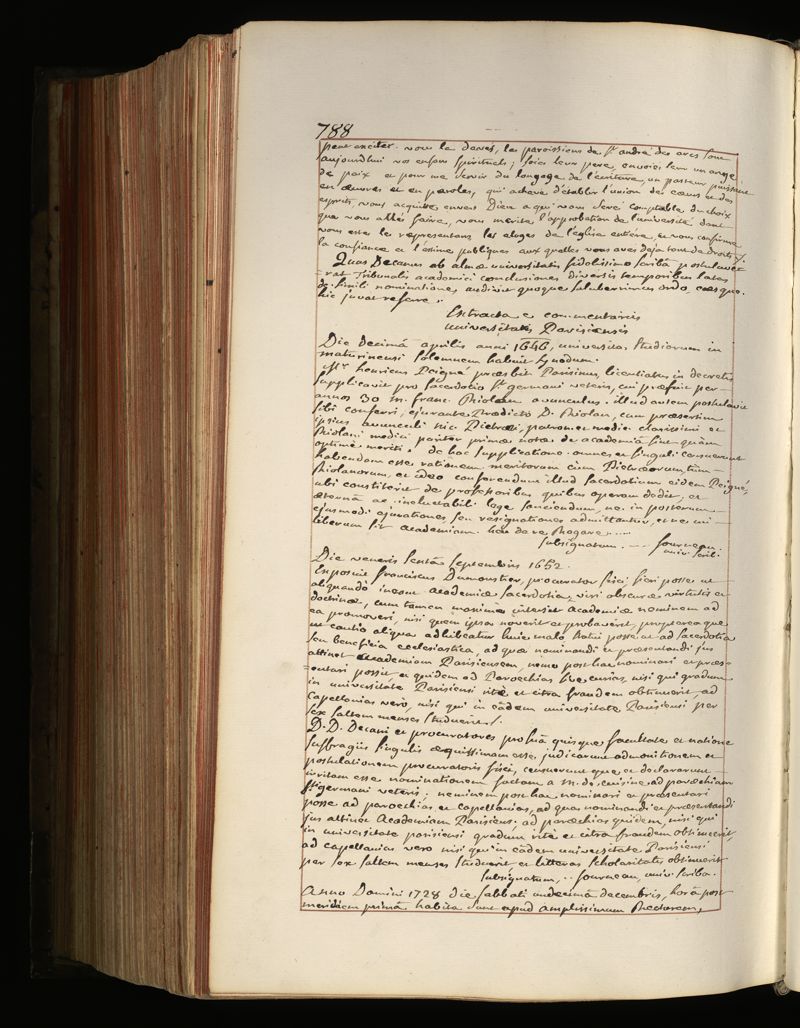 788
peut exciter. vous le devés, les paroissiens de St. andré des arcs sont
aujourdhui vos enfans spirituels; soiés leur pere, envoiés leur un ange
de paix et pour me servir du langage de l'écriture, un pasteur puissant
en œuvres et en paroles, qui acheve d'établir l'union des cœurs et des
esprits, vous acquitte envers Dieu a qui vous serés comptable du choix
que vous allés faire, vous merite l'approbation de l'université dont
vous estes le representant, les eloges de l'eglise entiere, et vous confirme
la confiance et l'estime publiques aux quelles vous avés deja tant de droits ./.
Quas Decanus ab almæ universitatis fidelissimo scribâ postulave-
-rat Tribunalis academici conclusiones diversis temporibus latas
de simili nominatione, audivit quoque saluberrimus ordo, easque
hic juvat referre.
Extracta e commentariis
universitatis Parisiensis
Die decimâ aprilis anni 1646, universitas studiorum in
maturinensi solemnem habuit synodum.
Mr. henricus Peigné presbit. Parisinus, licentiatus in decretis
supplicavit pro sacerdotio Sti. germani veteris, cui præfuit per
annos 30 m. franc. Rhiolan avunculus. illud autem postulavit
sibi conferri, ejurante Prædicto D. Rhiolan, cum præsertim
ipsius avunculi nic. Pietræi, patroni et medici clarissimi et
Rhiolani medici pariter primæ notæ de academiâ sint quàm
optimè meriti. de hac supplicatione omnes et singuli censuerunt
habendam esse rationem meritorum cùm Pietræorum tùm
Rhiolanorum, et ideo conferendum illud sacerdotium eidem Peigné,
ubi constiterit de professoribus quibus operam dedit, et
æternâ ac ineluctabili lege sanciendum, ne in posterum
ejusmodi ejurationes seu resignationes admittantur, et ne cui
liberum sit academiam hâc de re Rogare .....
subsignatum. --- fourneau
univ. scrib.
Die veneris sextâ septembris 1652.
Exposuit franciscus Dumonstier, procurator fisci, fieri posse ut
aliquando ineant academiæ sacerdotia, viri obscuræ virtutis et
doctrinæ, cum tamen maximè intersit academiæ neminem ad
ea promoveri, nisi quem ipsa noverit et probaverit, proptereaque
ut cautio aliqua adhibeatur huic malo statui posse, ut ad sacerdotia
seu beneficia ecclesiastica, ad quæ nominandi et præsentandi jus
attinet academiam Parisiensem, nemo posthac nominari et præs-
-entari possit et quidem ad Parochias sive curias, nisi qui gradum
in universitate Parisiensi ritè et citra fraudem obtinuerit, ad
Capellanias vero, nisi qui in eâdem universitate Parisiensi per
sex saltem menses studuerit ./.
D. D. Decani et procuratores pro suâ quisque facultate et natione
suffragiis singulis æquissimam esse, judicarunt admonitionem et
postulationem procuratoris fisci, censueruntque et declararunt
irritam esse nominationem factam a m. de cuisine, ad parochiam
Sti. germani veteris; neminem posthac nominari et præsentari
posse ad parochias et capellanias, ad quas nominandi et præsentandi
jus attinet Academiam Parisiens. ad parochias quidem, nisi qui
in universitate parisiensi gradum ritè et citra fraudem obtinuerit,
ad capellanias vero nisi qui in eâdem universitate Parisiensi
per sex saltem menses studuerit et litteras scholaritatis obtinuerit
subsignatum, .. fourneau, univ. scriba.
Anno Domini 1728 die sabbati undecimâ decembris, horâ post
meridiem primâ habita sunt apud amplissimum Rectorem,